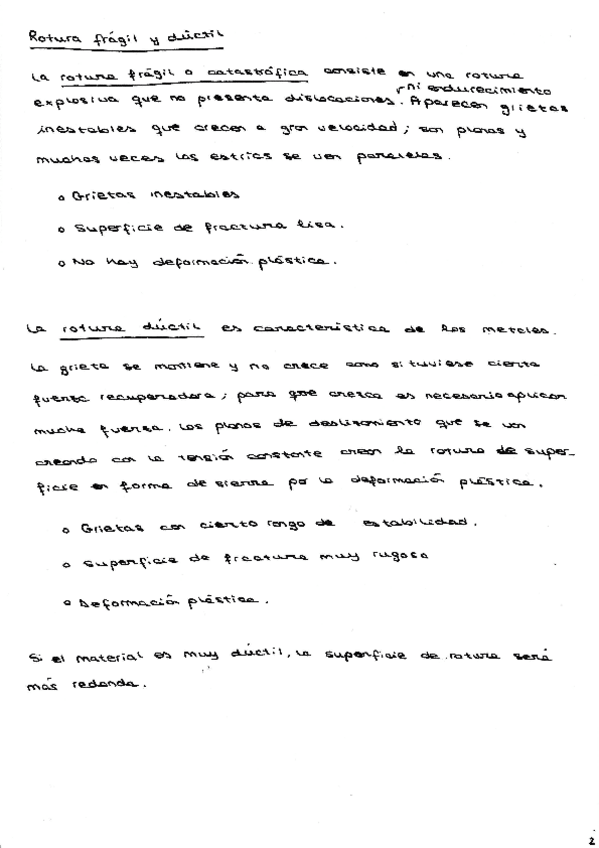 Rotura frágil y dúctil
La rotura frágil o catastrófica consiste en una rotura
explosiva que no presenta dislocaciones ni endurecimiento. Aparecen grietas
inestables que crecen a gran velocidad; son planas y
muchas veces las estrías se ven paralelas.
o Grietas inestables
o Superficie de fractura lisa.
o No hay deformación plástica.
La rotura dúctil es característica de los metales.
La grieta se mantiene y no crece como si tuviese cierta
fuerza recuperadora; para que crezca es necesario aplicar
mucha fuerza. Los planos de deslizamiento que se van
creando con la tensión constante crean la rotura de super-
ficie en forma de sierra por la deformación plástica.
o Grietas con cierto rango de estabilidad.
o Superficie de fractura muy rugosa
o Deformación plástica.
Si el material es muy dúctil, la superficie de rotura será
más redonda.
2